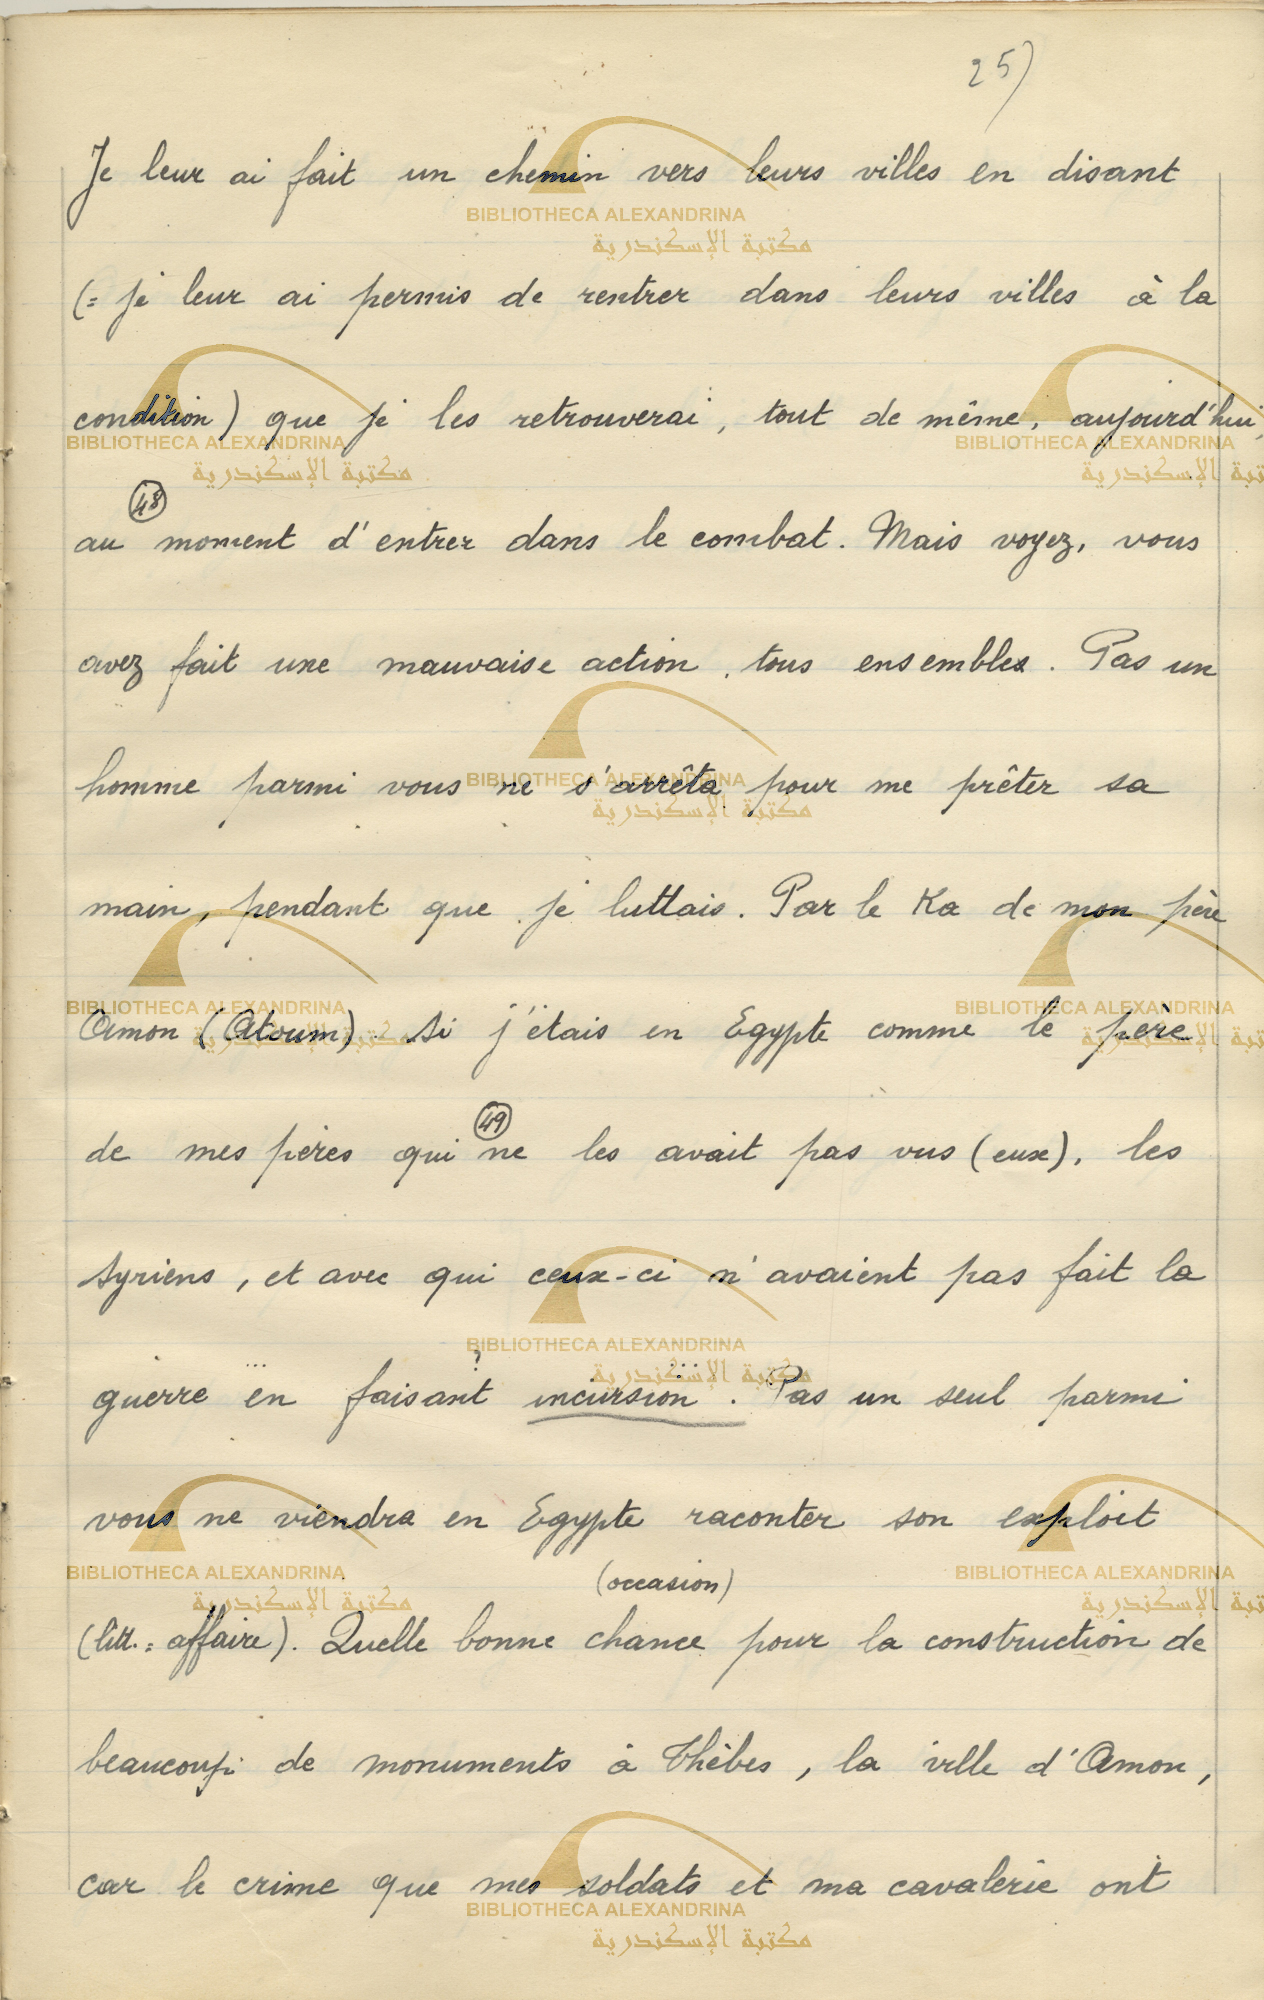 25)
Je leur ai fait un chemin vers leurs villes en disant
(= je leur ai permis de rentrer dans leurs villes à la
condition) que je les retrouverai, tout de même, aujourd'hui,
(48)
au moment d'entrer dans le combat. Mais voyez, vous
avez fait une mauvaise action, tous ensembles. Pas un
homme parmi vous ne s'arrêta pour me prêter sa
main, pendant que je luttais. Par le Ka de mon père
Amon (Atoum). Si j'étais en Egypte comme le père
(49)
de mes pères qui ne les avait pas vus (eux), les
Syriens, et avec qui ceux-ci n'avaient pas fait la
?
guerre en faisant incursion. Pas un seul parmi
vous ne viendra en Egypte raconter son exploit
(occasion)
(litt. = affaire). Quelle bonne chance pour la construction de
beaucoup de monuments à Thèbes, la ville d'Amon,
car le crime que mes soldats et ma cavalerie ont
BIBLIOTHECA ALEXANDRINA
مكتبة الإسكندرية